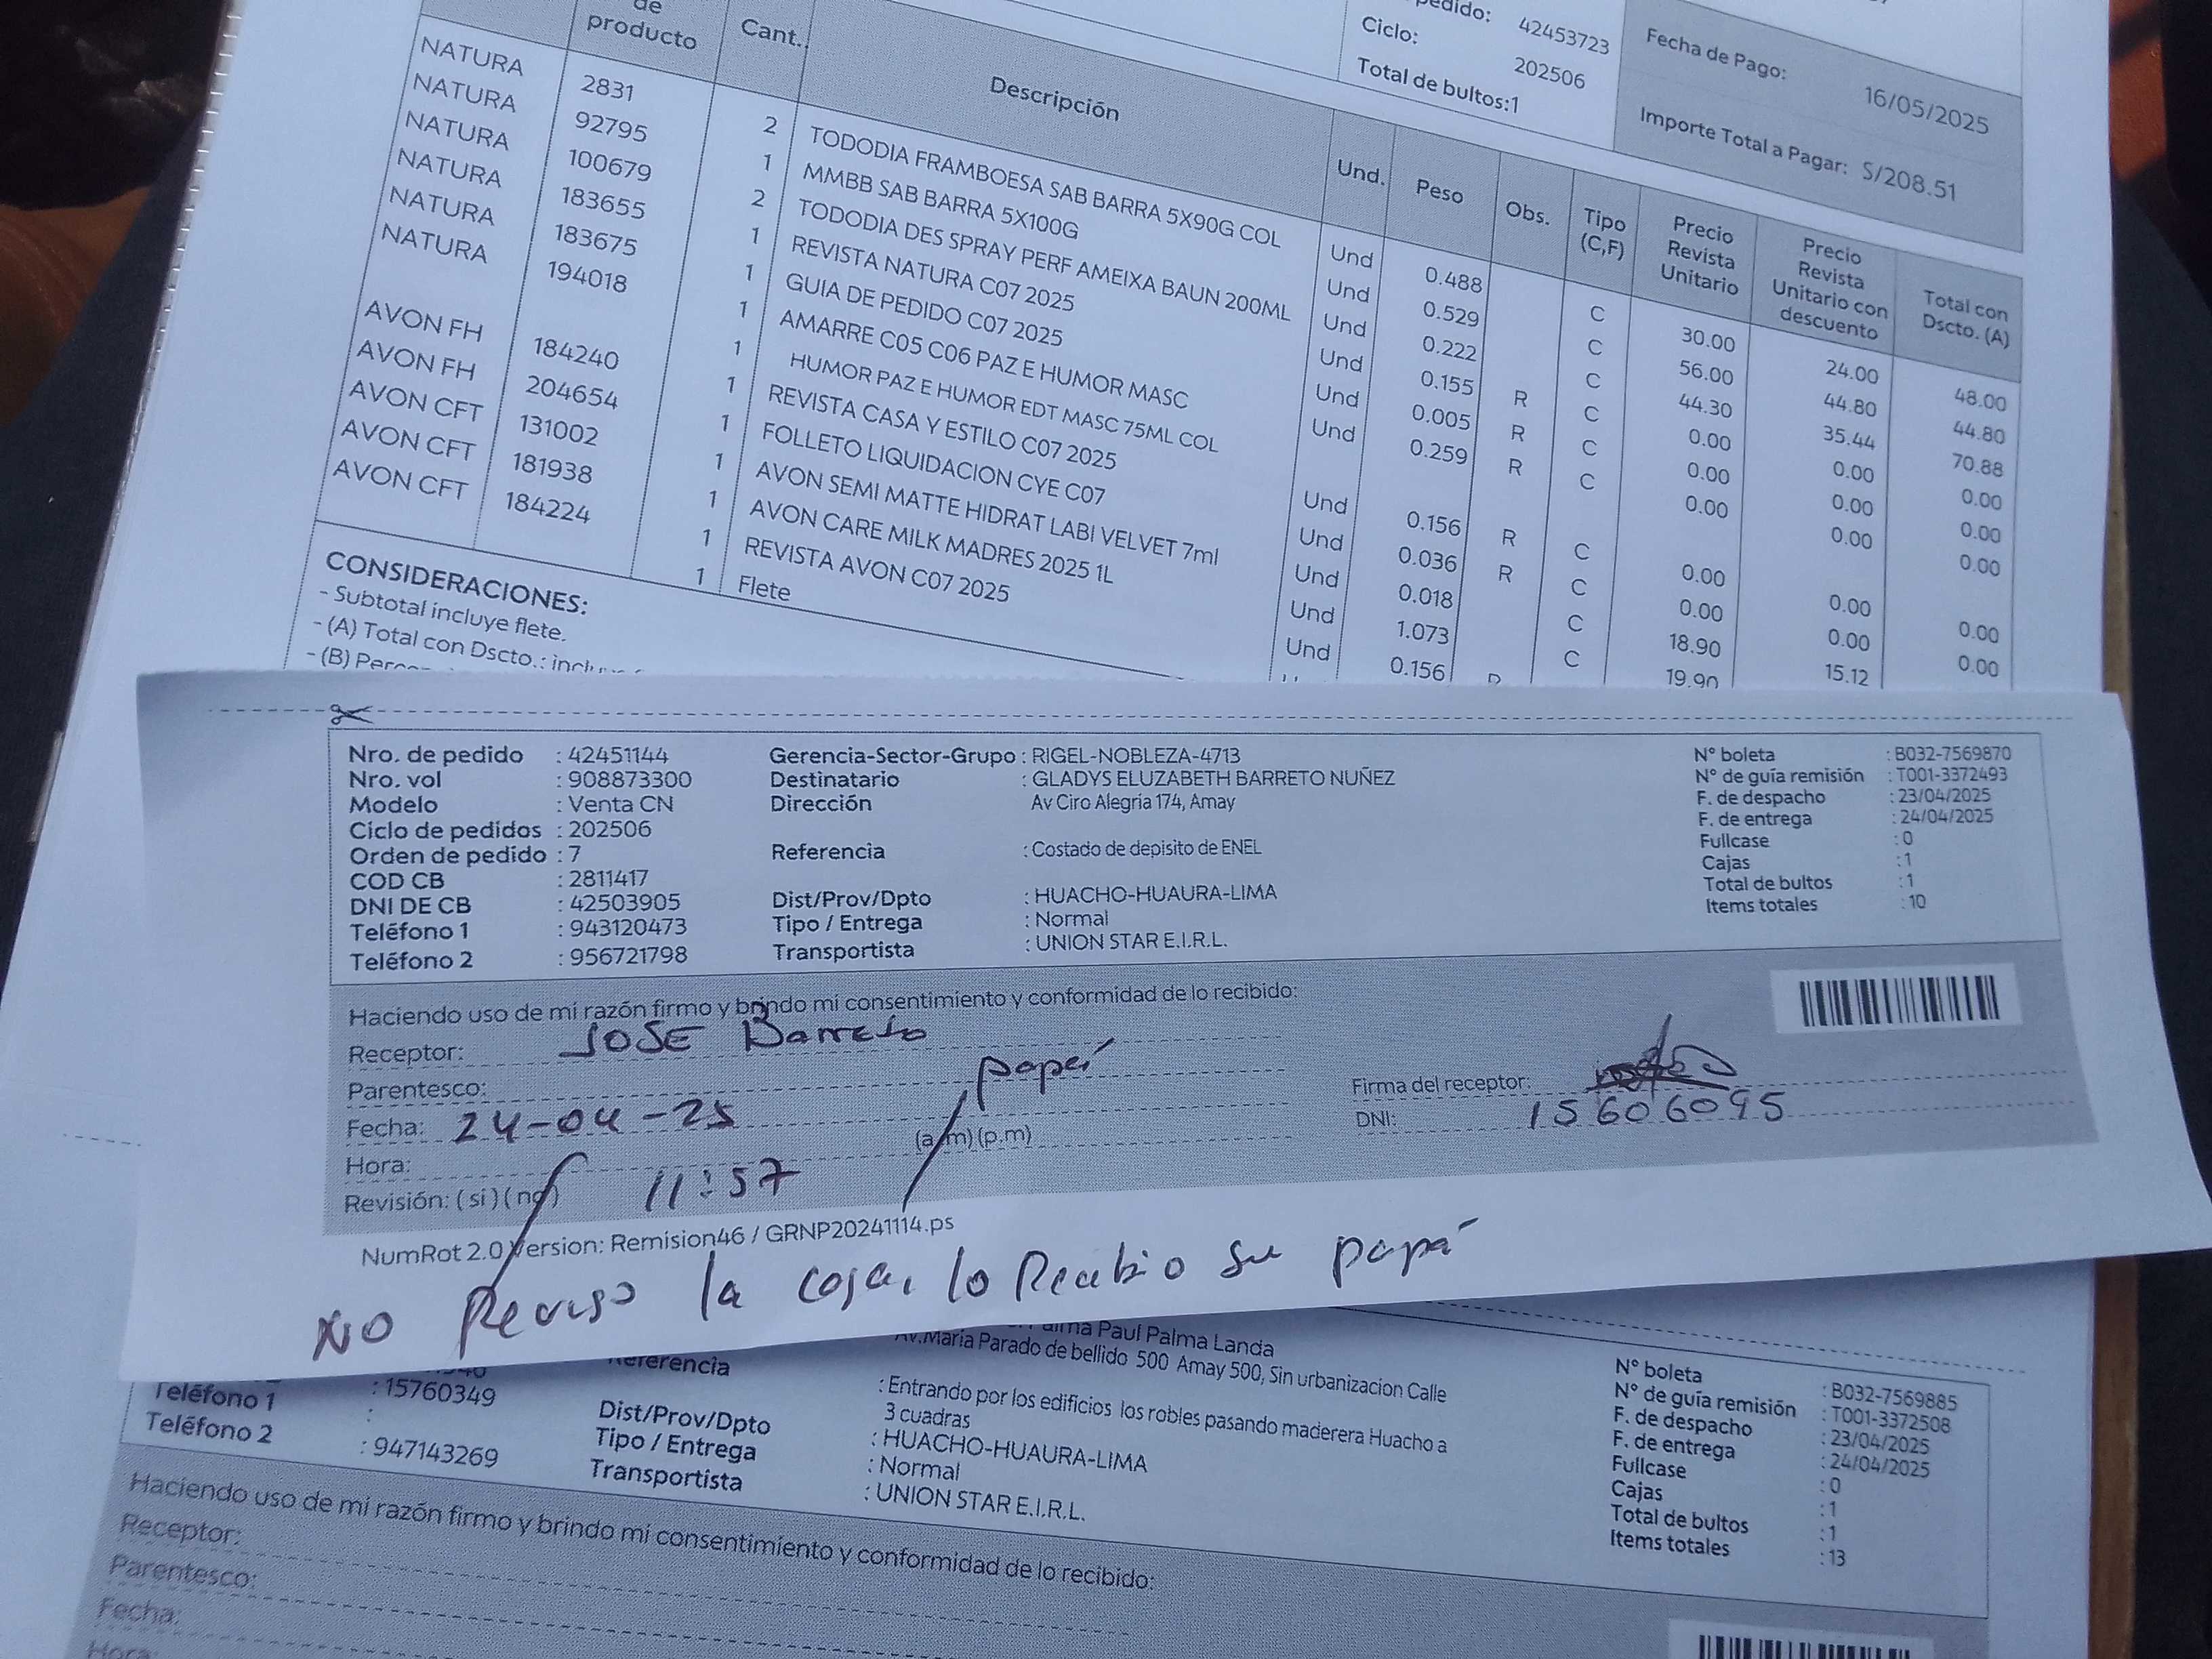 pedido: 42453723
Ciclo: 202506
Total de bultos:1
Fecha de Pago: 16/05/2025
Importe Total a Pagar: S/208.51
de producto Cant. Descripción Und. Peso Obs. Tipo (C,F) Precio Revista Unitario Precio Revista Unitario con descuento Total con Dscto. (A)
NATURA 2831 2 TODODIA FRAMBOESA SAB BARRA 5X90G COL Und 0.488 C 30.00 24.00 48.00
NATURA 92795 1 MMBB SAB BARRA 5X100G Und 0.529 C 56.00 44.80 44.80
NATURA 100679 2 TODODIA DES SPRAY PERF AMEIXA BAUN 200ML Und 0.222 C 44.30 35.44 70.88
NATURA 183655 1 REVISTA NATURA C07 2025 Und 0.155 R C 0.00 0.00 0.00
NATURA 183675 1 GUIA DE PEDIDO C07 2025 Und 0.005 R C 0.00 0.00 0.00
NATURA 194018 1 AMARRE C05 C06 PAZ E HUMOR MASC Und 0.259 R C 0.00 0.00 0.00
1 HUMOR PAZ E HUMOR EDT MASC 75ML COL
AVON FH 184240 1 REVISTA CASA Y ESTILO C07 2025 Und 0.156 R C 0.00 0.00 0.00
AVON FH 204654 1 FOLLETO LIQUIDACION CYE C07 Und 0.036 R C 0.00 0.00 0.00
AVON CFT 131002 1 AVON SEMI MATTE HIDRAT LABI VELVET 7ml Und 0.018 C 18.90 15.12
AVON CFT 181938 1 AVON CARE MILK MADRES 2025 1L Und 1.073 C 19.90
AVON CFT 184224 1 REVISTA AVON C07 2025 Und 0.156
1 Flete
CONSIDERACIONES:
- Subtotal incluye flete.
- (A) Total con Dscto.:
- (B)
Nro. de pedido : 42451144 Gerencia-Sector-Grupo : RIGEL-NOBLEZA-4713 N° boleta : B032-7569870
Nro. vol : 908873300 Destinatario : GLADYS ELUZABETH BARRETO NUÑEZ N° de guía remisión : T001-3372493
Modelo : Venta CN Dirección Av Ciro Alegria 174, Amay F. de despacho : 23/04/2025
Ciclo de pedidos : 202506 F. de entrega : 24/04/2025
Orden de pedido : 7 Referencia : Costado de deposito de ENEL Fullcase : 0
COD CB : 2811417 Cajas : 1
DNI DE CB : 42503905 Dist/Prov/Dpto : HUACHO-HUAURA-LIMA Total de bultos : 1
Teléfono 1 : 943120473 Tipo / Entrega : Normal Items totales : 10
Teléfono 2 : 956721798 Transportista : UNION STAR E.I.R.L.
Haciendo uso de mi razón firmo y brindo mi consentimiento y conformidad de lo recibido:
Receptor: JOSE Barreto
Parentesco: papá
Firma del receptor:
Fecha: 24-04-25
DNI: 15606095
Hora: 11:57 (a.m) (p.m)
Revisión: (si) (no)
NumRot 2.0 Version: Remision46 / GRNP20241114.ps
NO Reviso la caja, lo Recibio su papá
Paul Palma Landa
Av.Maria Parado de bellido 500 Amay 500, Sin urbanizacion Calle
Referencia : Entrando por los edificios los robles pasando maderera Huacho a
3 cuadras
Teléfono 1 : 15760349 Dist/Prov/Dpto : HUACHO-HUAURA-LIMA
Teléfono 2 : 947143269 Tipo / Entrega : Normal
Transportista : UNION STAR E.I.R.L.
N° boleta : B032-7569885
N° de guía remisión : T001-3372508
F. de despacho : 23/04/2025
F. de entrega : 24/04/2025
Fullcase : 0
Cajas : 1
Total de bultos : 1
Items totales : 13
Haciendo uso de mi razón firmo y brindo mi consentimiento y conformidad de lo recibido:
Receptor:
Parentesco:
Fecha:
Hora: